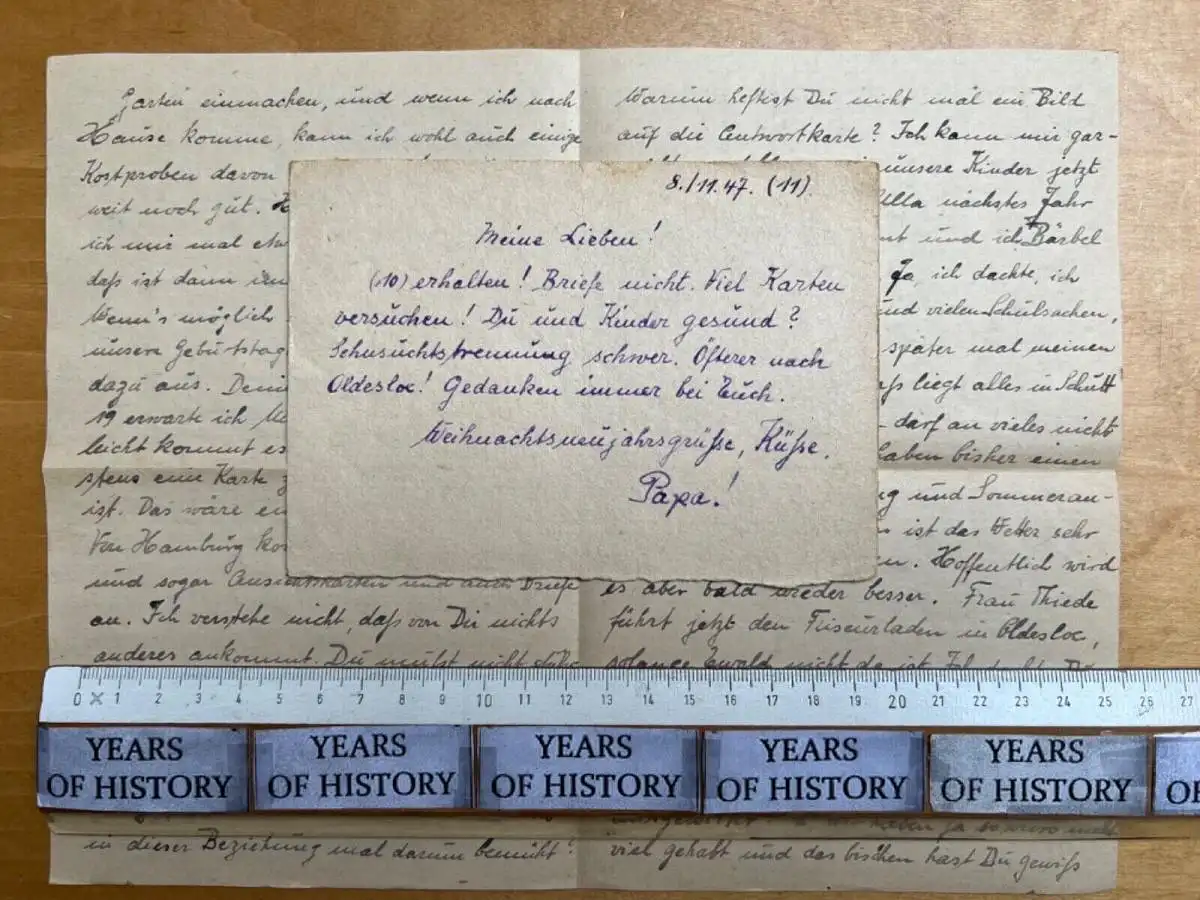 Garten einmachen, und wenn ich nach
Hause komme, kann ich wohl auch einige
Kostproben davon
weit noch gut.
ich mir mal
daß ist dann
Wenn's möglich
unsere Geburtstag
dazu aus.
19 erwarte ich
leicht kommt es
stens eine Karte
ist. Das wäre
Von Hamburg
und sogar Ansichtskarten und auch Briefe
an. Ich verstehe nicht, daß von Dir nichts
anderes ankommt. Du mußt nicht
in dieser Beziehung mal darum bemüht?
Warum heftest Du nicht mal ein Bild
auf die Antwortkarte? Ich kann mir gar-
unsere Kinder jetzt
Ulla nächstes Jahr
und ich Bärbel
Ja, ich dachte, ich
und vielen Schulsachen,
später mal meinen
liegt alles in Schutt
darf an vieles nicht
haben bisher einen
und Sommeran-
ist das Wetter sehr
Hoffentlich wird
es aber bald wieder besser. Frau Thiede
führt jetzt den Friseurladen in Oldesloe,
solange Ewald nicht da ist.
viel gehabt und das bischen hast Du gewiß
8./11.47. (11)
Meine Lieben!
(10) erhalten! Briefe nicht. Viel Karten
versuchen! Du und Kinder gesund?
Sehnsuchtstrennung schwer. Öfterer nach
Oldesloe! Gedanken immer bei Euch.
Weihnachtsneujahrsgrüße, Küße.
Papa!
0 1 2 3 4 5 6 7 8 9 10 11 12 13 14 15 16 17 18 19 20 21 22 23 24 25 26 27
YEARS OF HISTORY
YEARS OF HISTORY
YEARS OF HISTORY
YEARS OF HISTORY
YEARS OF HISTORY